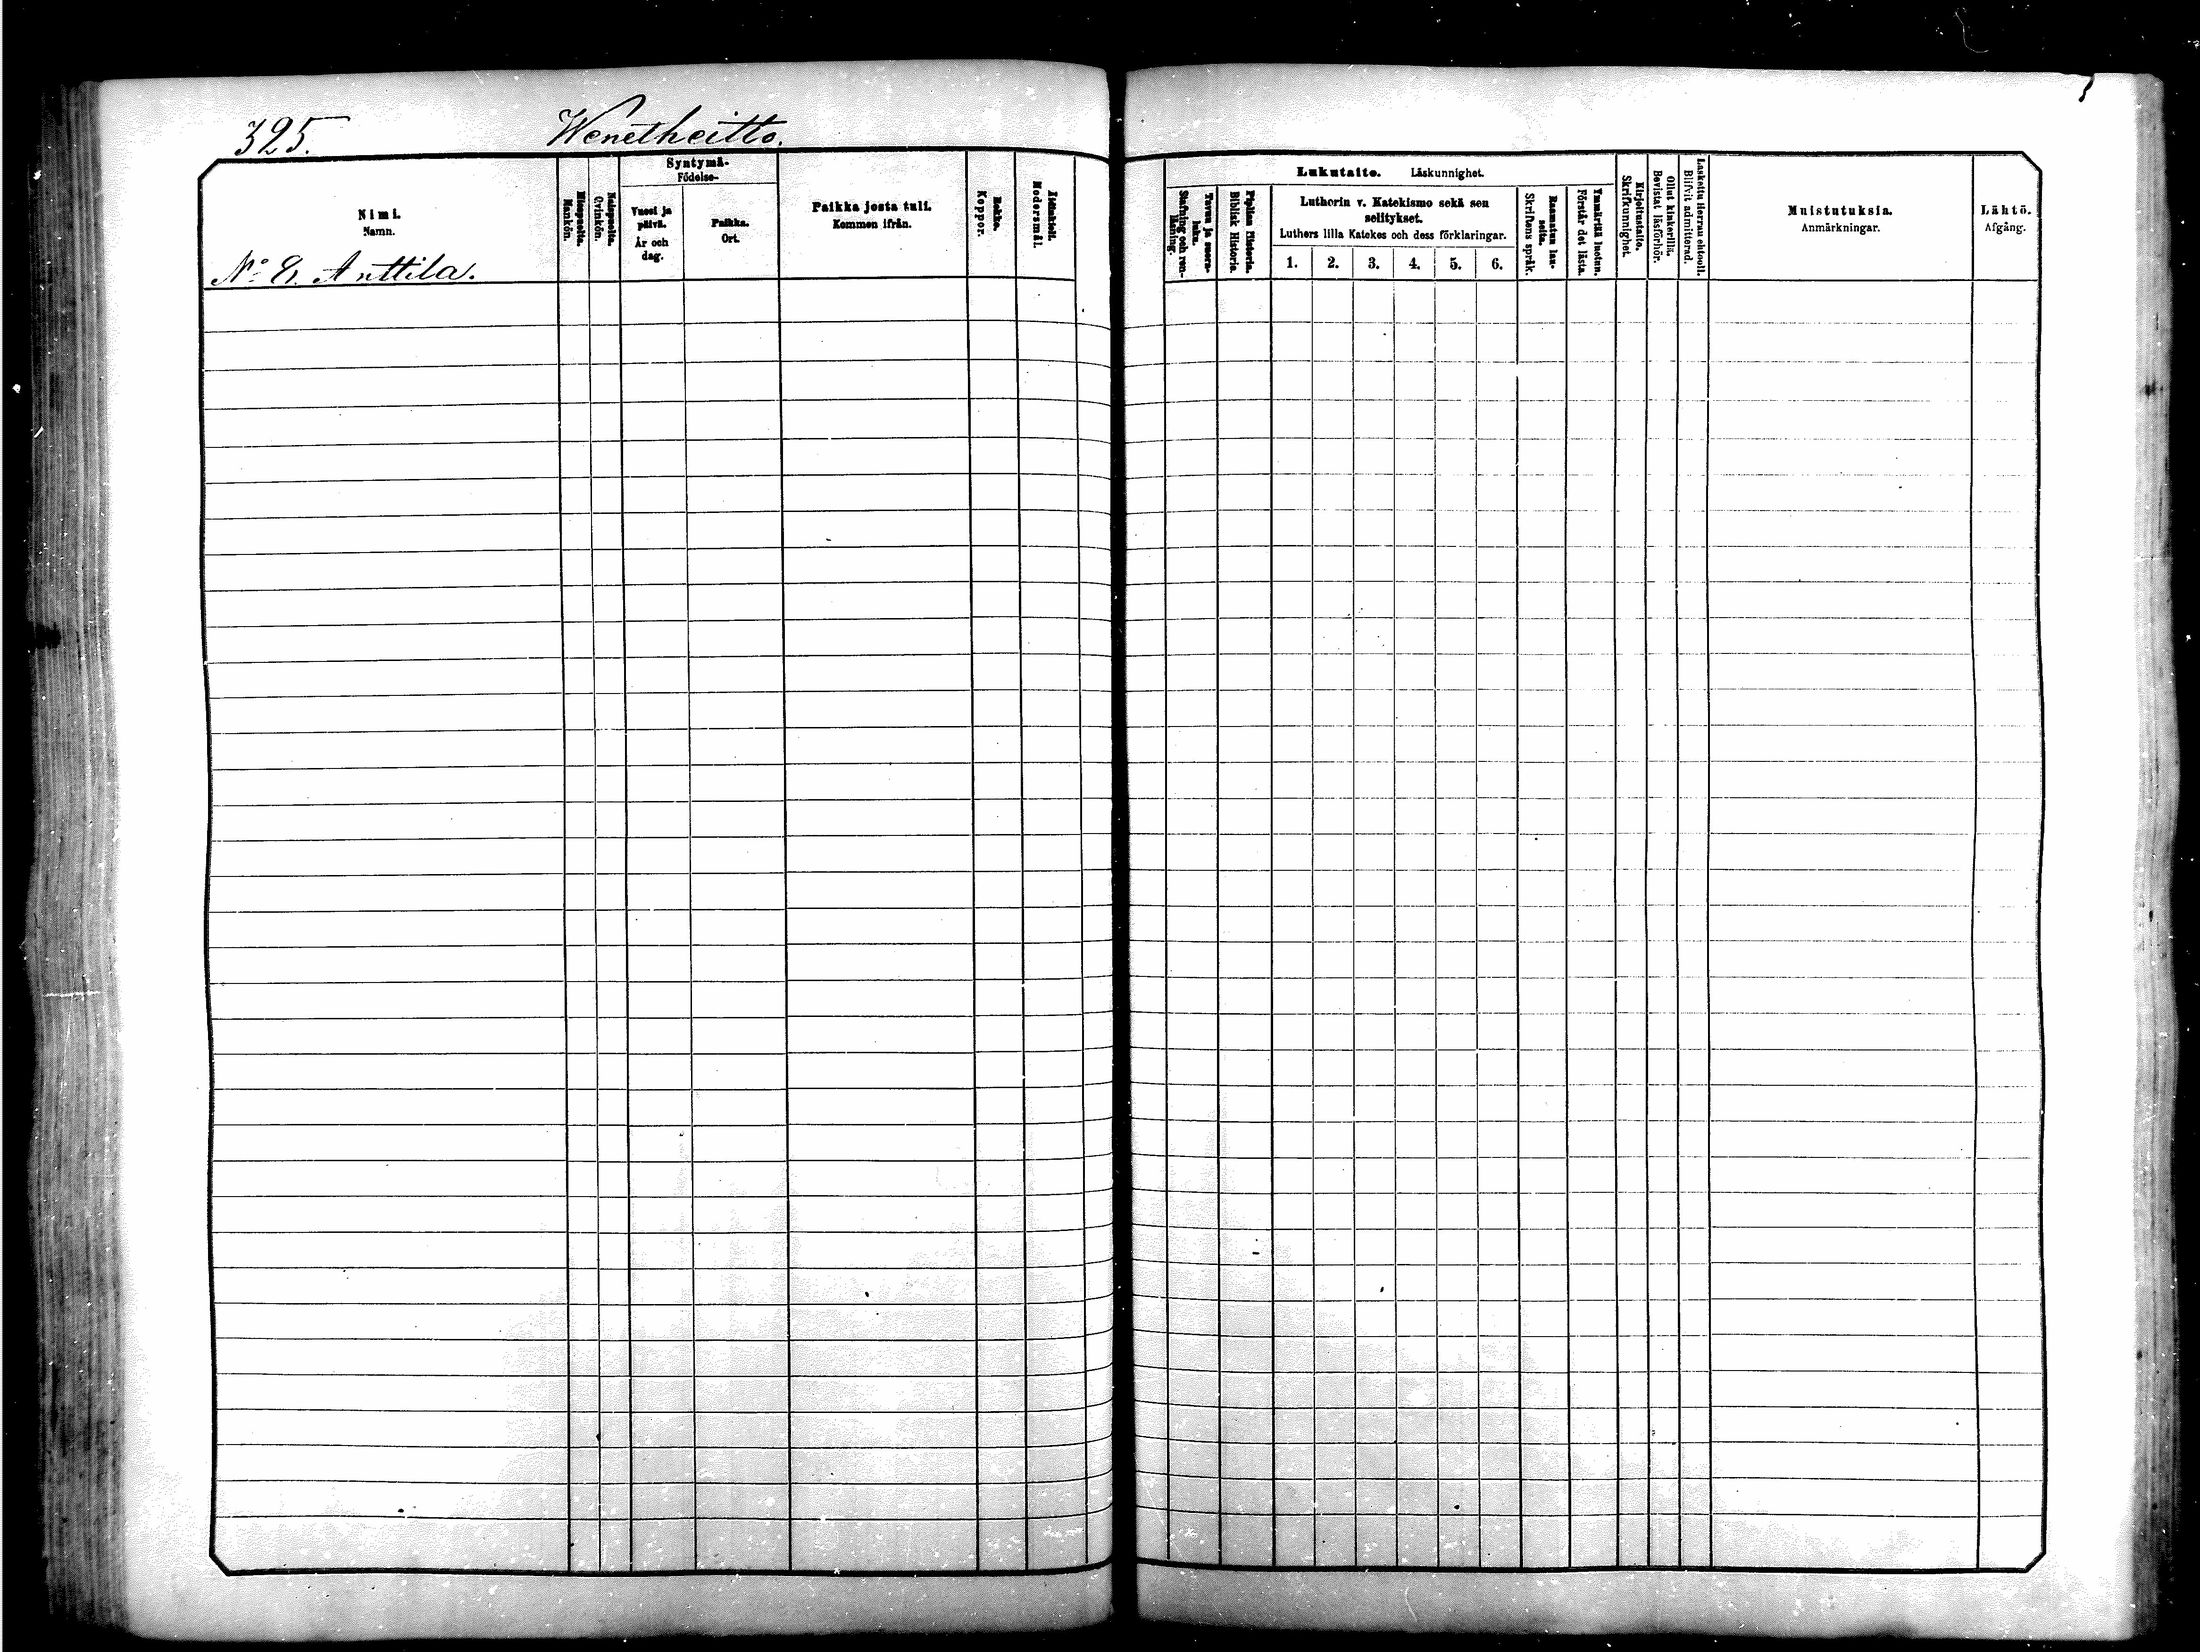 325.
Wenetheitto.
Nimi.
Namn.
No 8. Anttila.
Miespuolia.
Mankön.
Naispuolia.
Qvinkön.
Syntymä-
Födelse-
Vuosi ja
päivä.
År och
dag.
Paikka.
Ort.
Paikka josta tuli.
Kommen ifrån.
Rokko.
Koppor.
Äidinkieli.
Modersmål.
Lukutaito. Läskunnighet.
Tavuu ja suora-
luku.
Stafning och ren-
läsning.
Piplian Historia.
Biblisk Historia.
Lutherin v. Katekismo sekä sen
selitykset.
Luthers lilla Katekes och dess förklaringar.
1. 2. 3. 4. 5. 6.
Raamatun lau-
seita.
Skriftens språk.
Ymmärtää luetun.
Förstår det lästa.
Kirjoitustaito.
Skrifkunnighet.
Ollut kinkerillä.
Bevistat läsförhör.
Laskettu Herran ehtooll.
Blifvit admitterad.
Muistutuksia.
Anmärkningar.
Lähtö.
Afgång.